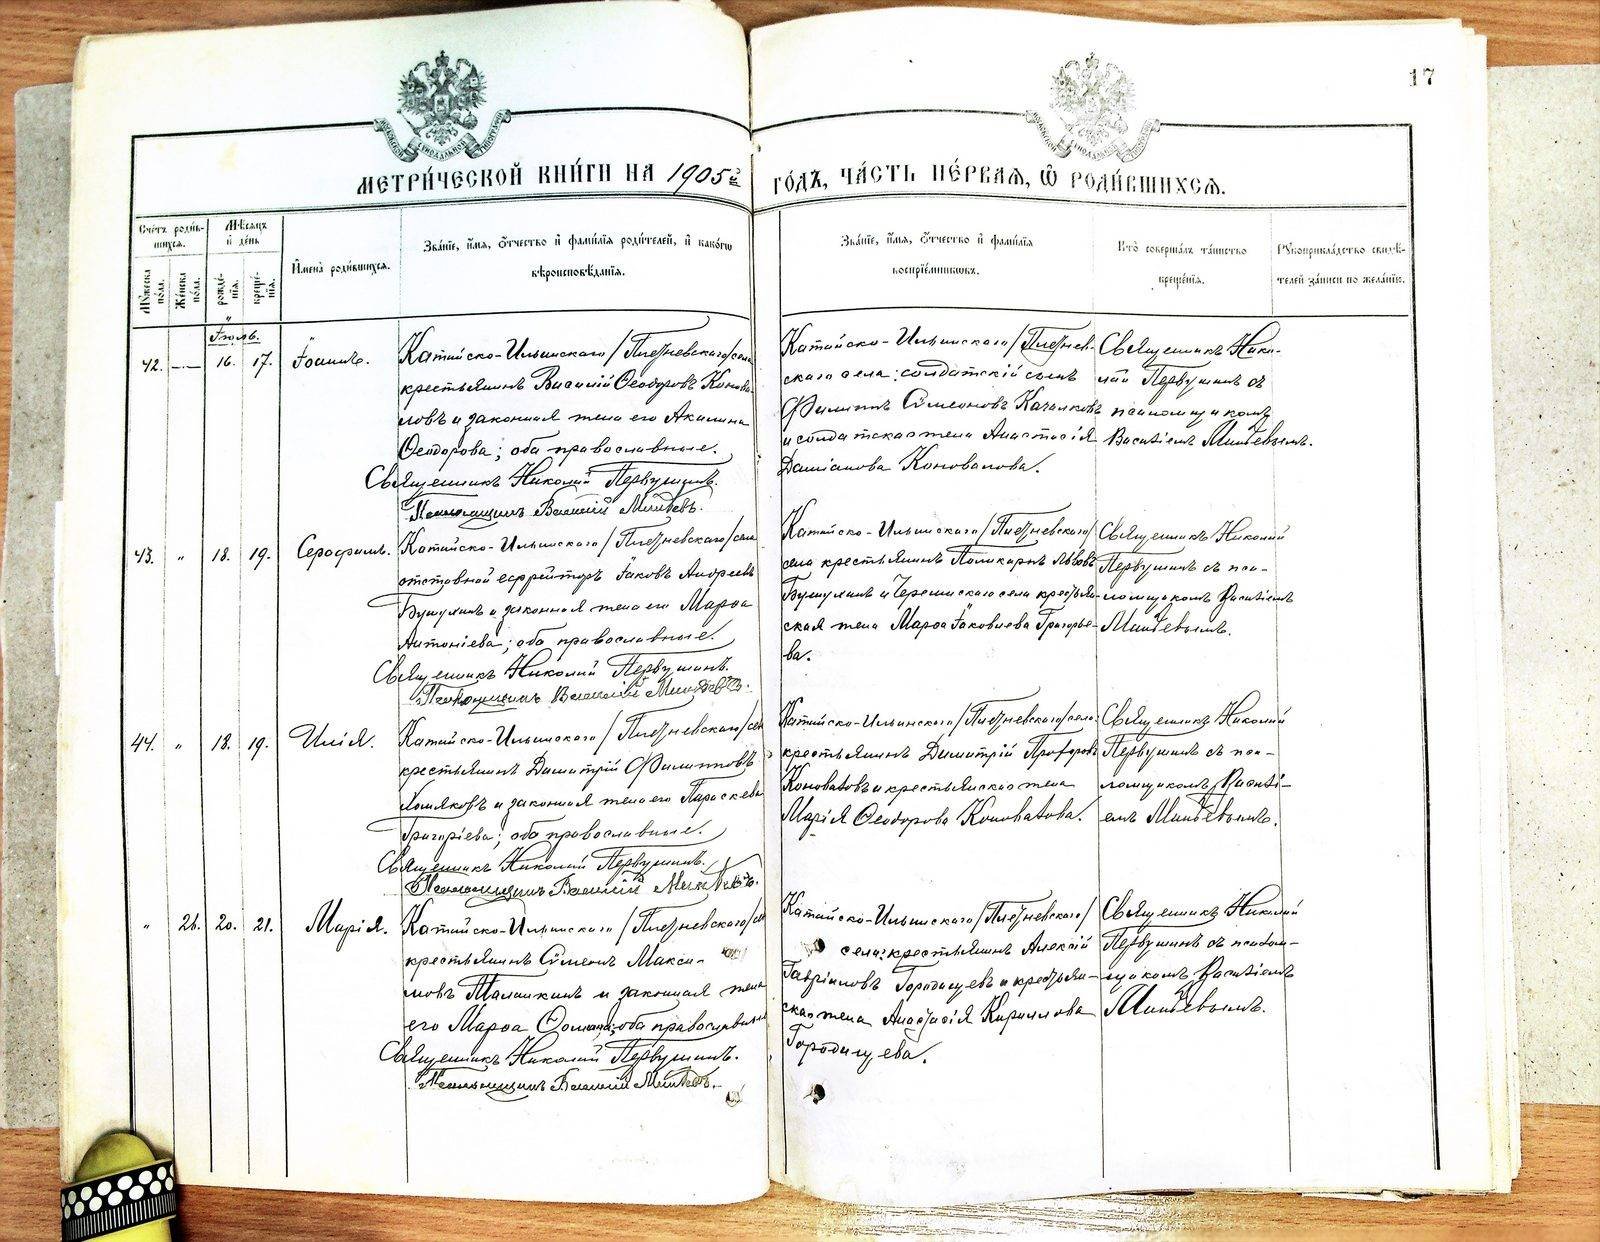 17
МЕТРИ́ЧЕСКОЙ КНИ́ГИ НА 1905й ГО́ДЪ, ЧА́СТЬ ПЕ́РВАЯ, Ѡ РОДИ́ВШИХСЯ.
Сче́тъ роди́в-
шихся.
Мѣ́сяцъ
и҆ де́нь
Мꙋ́жеска
по́ла.
Же́нска
по́ла.
рожде́-
нїя.
креще́-
нїя.
И҆мена̀ роди́вшихся.
Зва́нїе, и҆́мя, ѻ҆́тчество и҆ фами́лїя роди́телей, и҆ како́гѡ
вѣроисповѣ́данїя.
Зва́нїе, и҆́мя, ѻ҆́тчество и҆ фами́лїя
воспрїе́мниковъ.
Кто̀ соверша́лъ та́инство
креще́нїя.
Рꙋкоприкла́дство свидѣ́-
телей за́писи по жела́нїю.
Іюль.
42. — 16. 17. Іоаннъ.
Катайско-Ильинскаго /Плетневскаго/ села
крестьянинъ Василій Ѳеодоровъ Конова-
ловъ и законная жена его Акилина
Ѳеодорова; оба православные.
Священникъ Николай Первушинъ.
Псаломщикъ Василій Минѣевъ.
Катайско-Ильинскаго /Плетнев-
скаго села: солдатскій сынъ
Филиппъ Сѷмеоновъ Качалковъ
и солдатская жена Анастасія
Даміанова Коновалова.
Священникъ Нико-
лай Первушинъ съ
псаломщикомъ
Василіемъ Минѣевымъ.
43. „ 18. 19. Серафимъ.
Катайско-Ильинскаго /Плетневскаго/ села
отставной ефрейторъ Іаковъ Андреевъ
и законная жена его Марѳа
Антоніева; оба православные.
Священникъ Николай Первушинъ.
Псаломщикъ Василій Минѣевъ.
Катайско-Ильинскаго /Плетневскаго/
села крестьянинъ Поликарпъ Львовъ
и села крестьян-
ская жена Марѳа Іаковлева Григорье-
ва.
Священникъ Николай
Первушинъ съ пса-
ломщикомъ Василіемъ
Минѣевымъ.
44. „ 18. 19. Илія.
Катайско-Ильинскаго /Плетневскаго/ села
крестьянинъ Димитрій Филипповъ
Хомяковъ и законная жена его Параскева
Григоріева; оба православные.
Священникъ Николай Первушинъ.
Псаломщикъ Василій Минѣевъ.
Катайско-Ильинскаго /Плетневскаго/ села:
крестьянинъ Димитрій Прохоровъ
Коноваловъ и крестьянская жена
Марія Ѳеодорова Коновалова.
Священникъ Николай
Первушинъ съ пса-
ломщикомъ Василі-
емъ Минѣевымъ.
„ 26. 20. 21. Марія.
Катайско-Ильинскаго /Плетневскаго/
крестьянинъ Сѷмеонъ Макси-
мовъ и законная жена
его Марѳа оба православные
Священникъ Николай Первушинъ.
Псаломщикъ Василій Минѣевъ.
Катайско-Ильинскаго /Плетневскаго/
села: крестьянинъ Алексій
Гавріиловъ Городищевъ и крестьян-
ская жена Анастасія Кириллова
Городищева.
Священникъ Николай
Первушинъ съ псалом-
щикомъ Василіемъ
Минѣевымъ.